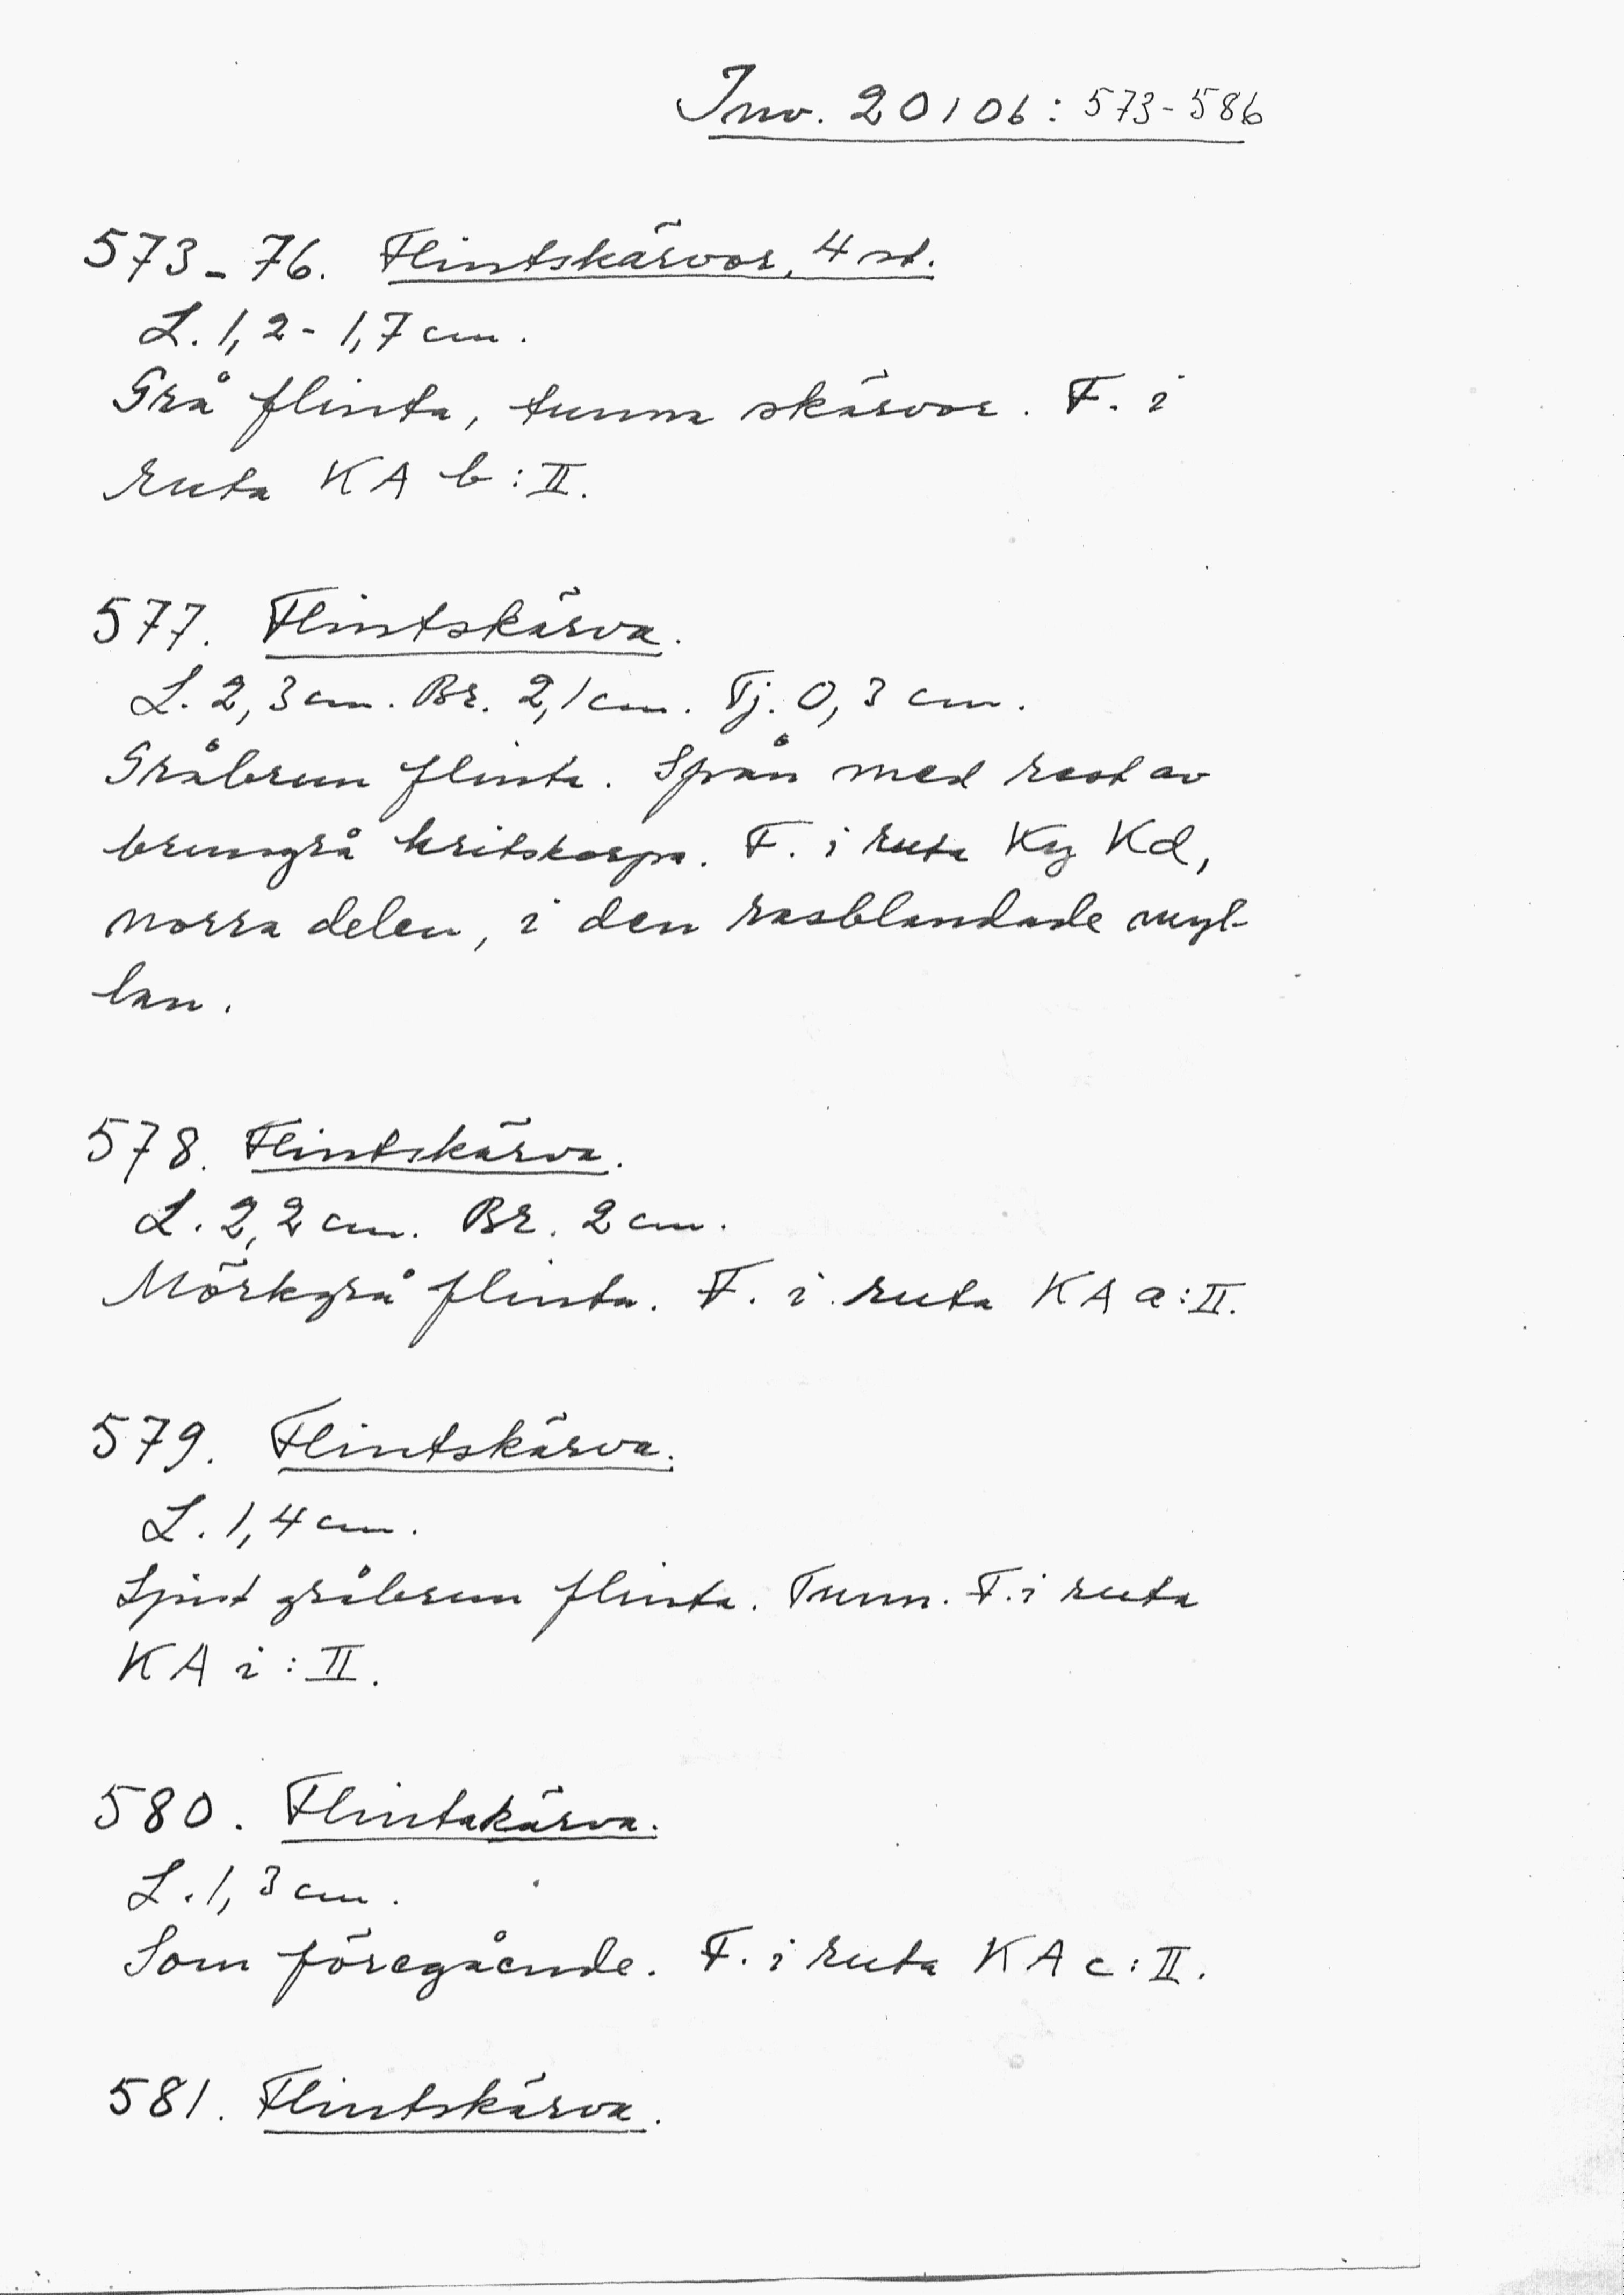 Inv. 20106: 573-586
573-76. Flintskärvor, 4 st.
L. 1,2-1,7 cm.
Grå flinta, tunna skärvor. F. i
ruta KA b:II.
577. Flintskärva.
L. 2,3 cm. Br. 2,1 cm. Tj. 0,3 cm.
Gråbrun flinta. Spån med rest av
brungrå kritskorpa. F. i ruta Kd,
norra delen, i den rasblandade myl-
lan.
578. Flintskärva.
L. 2,2 cm. Br. 2 cm.
Mörkgrå flinta. F. i ruta KA a:II.
579. Flintskärva.
L. 1,4 cm.
Ljust gråbrun flinta. Tunn. F. i ruta
KA i:II.
580. Flintskärva.
L. 1,3 cm.
Som föregående. F. i ruta KA c:II.
581. Flintskärva.